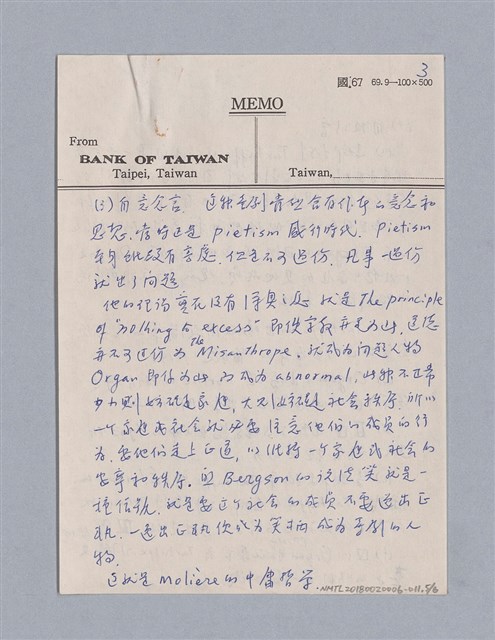 3
國.67 69.9—100×500
MEMO
From
BANK OF TAIWAN
Taipei, Taiwan
Taiwan,
(3) 自意念言. 這種喜劇當然含有作者的意念和
思想. 當時正是 pietism 盛行時代. Pietism
本身並沒有害處. 但是不可過份. 凡事一過份
就出了問題
他的理論實在沒有深奧之處 就是 The principle
of "nothing to excess" 即使宗教亦是如此. 道德
亦不可過份 如 the Misanthrope. 就成為問題人物
Orgon 即係如此 而成為 abnormal, 此種不正常
小則妨碍家庭, 大則妨碍社會秩序. 所以
一個家庭或社會就必要注意他們的成員的行
為. 要他們走上正道, 以維持一個家庭或社會的
安寧和秩序. 照 Bergson 的說法 笑就是一
種信號. 就是要這個社會的成員不要逸出正
軌. 一逸出正軌便成為笑柄 成為喜劇的人
物.
這就是 Molière 的中庸哲學
NMTL20180020006-011. 5/6